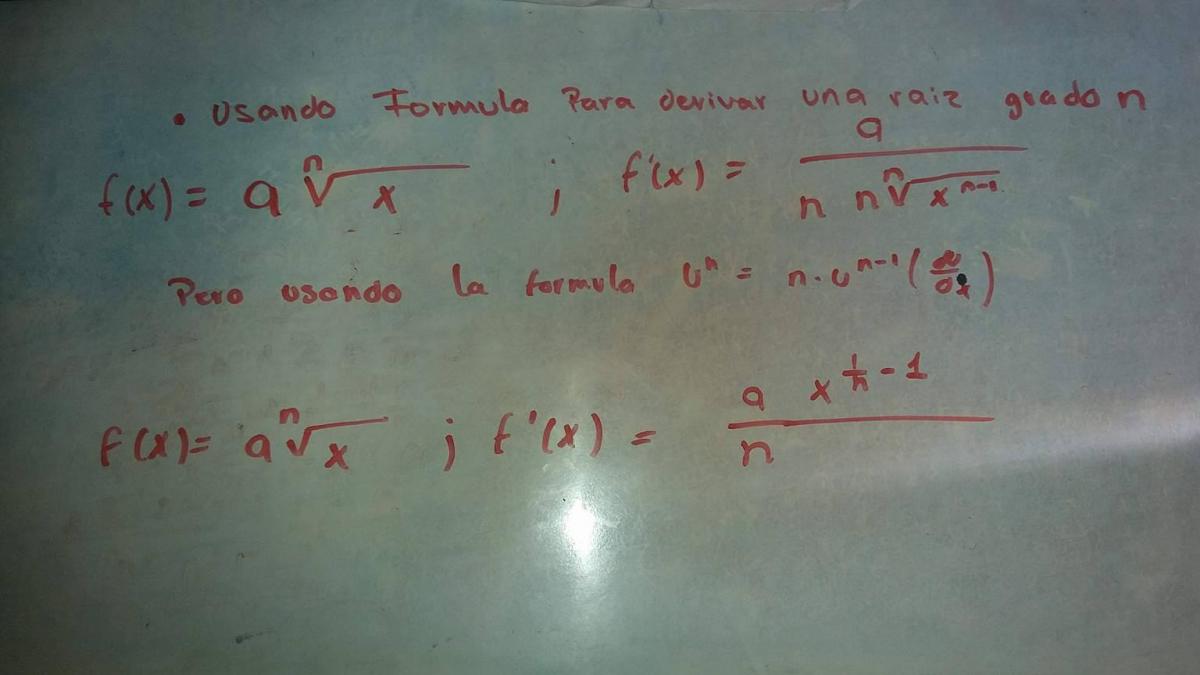 • Usando Formula Para derivar una raiz grado n
f(x) = a ⁿ√x ; f'(x) = a / (n n ⁿ√(x^(n-1)))
Pero usando la formula Uⁿ = n·U^(n-1) (du/dx)
f(x) = a ⁿ√x ; f'(x) = a x^(1/n - 1) / n